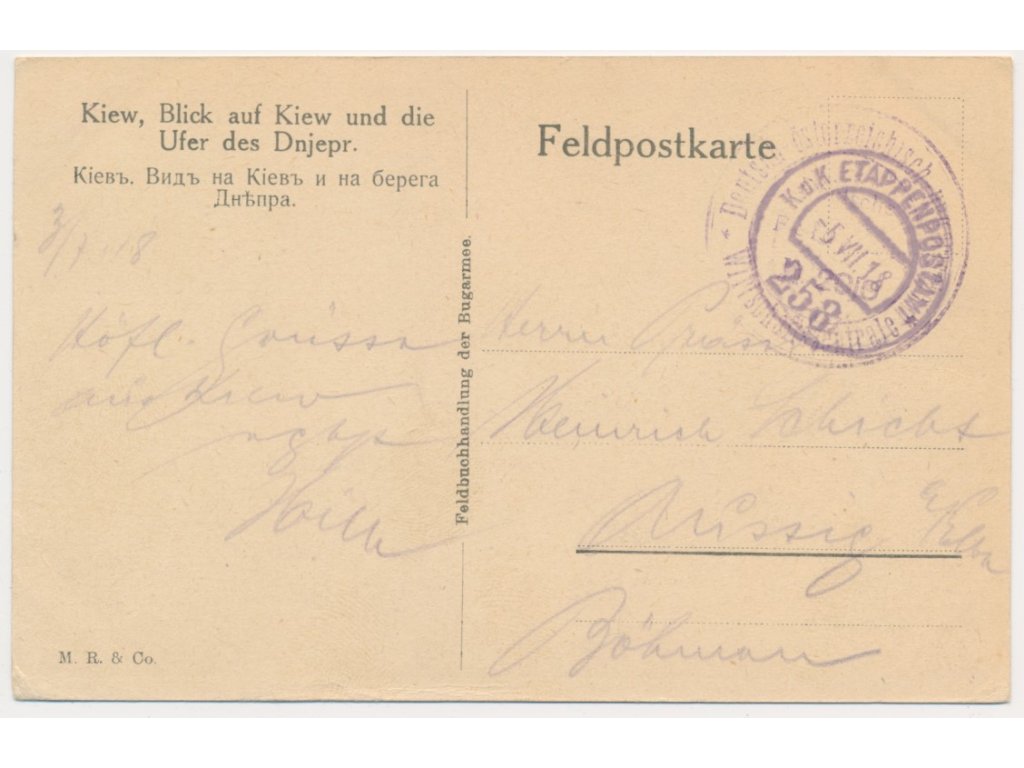 Kiew, Blick auf Kiew und die
Ufer des Dnjepr.
Кіевъ. Видъ на Кіевъ и на берега
Днѣпра.
3/7 18.
Höfl. Grüsse
aus Kiew
Feldbuchhandlung der Bugarmee.
M. R. & Co.
Feldpostkarte
Deutsch-österreichisch-
K.u.K. ETAPPENPOSTAMT
5.VII.18
258
Herrn
Heinrich Schicht
Aussig a/Elbe
Böhmen